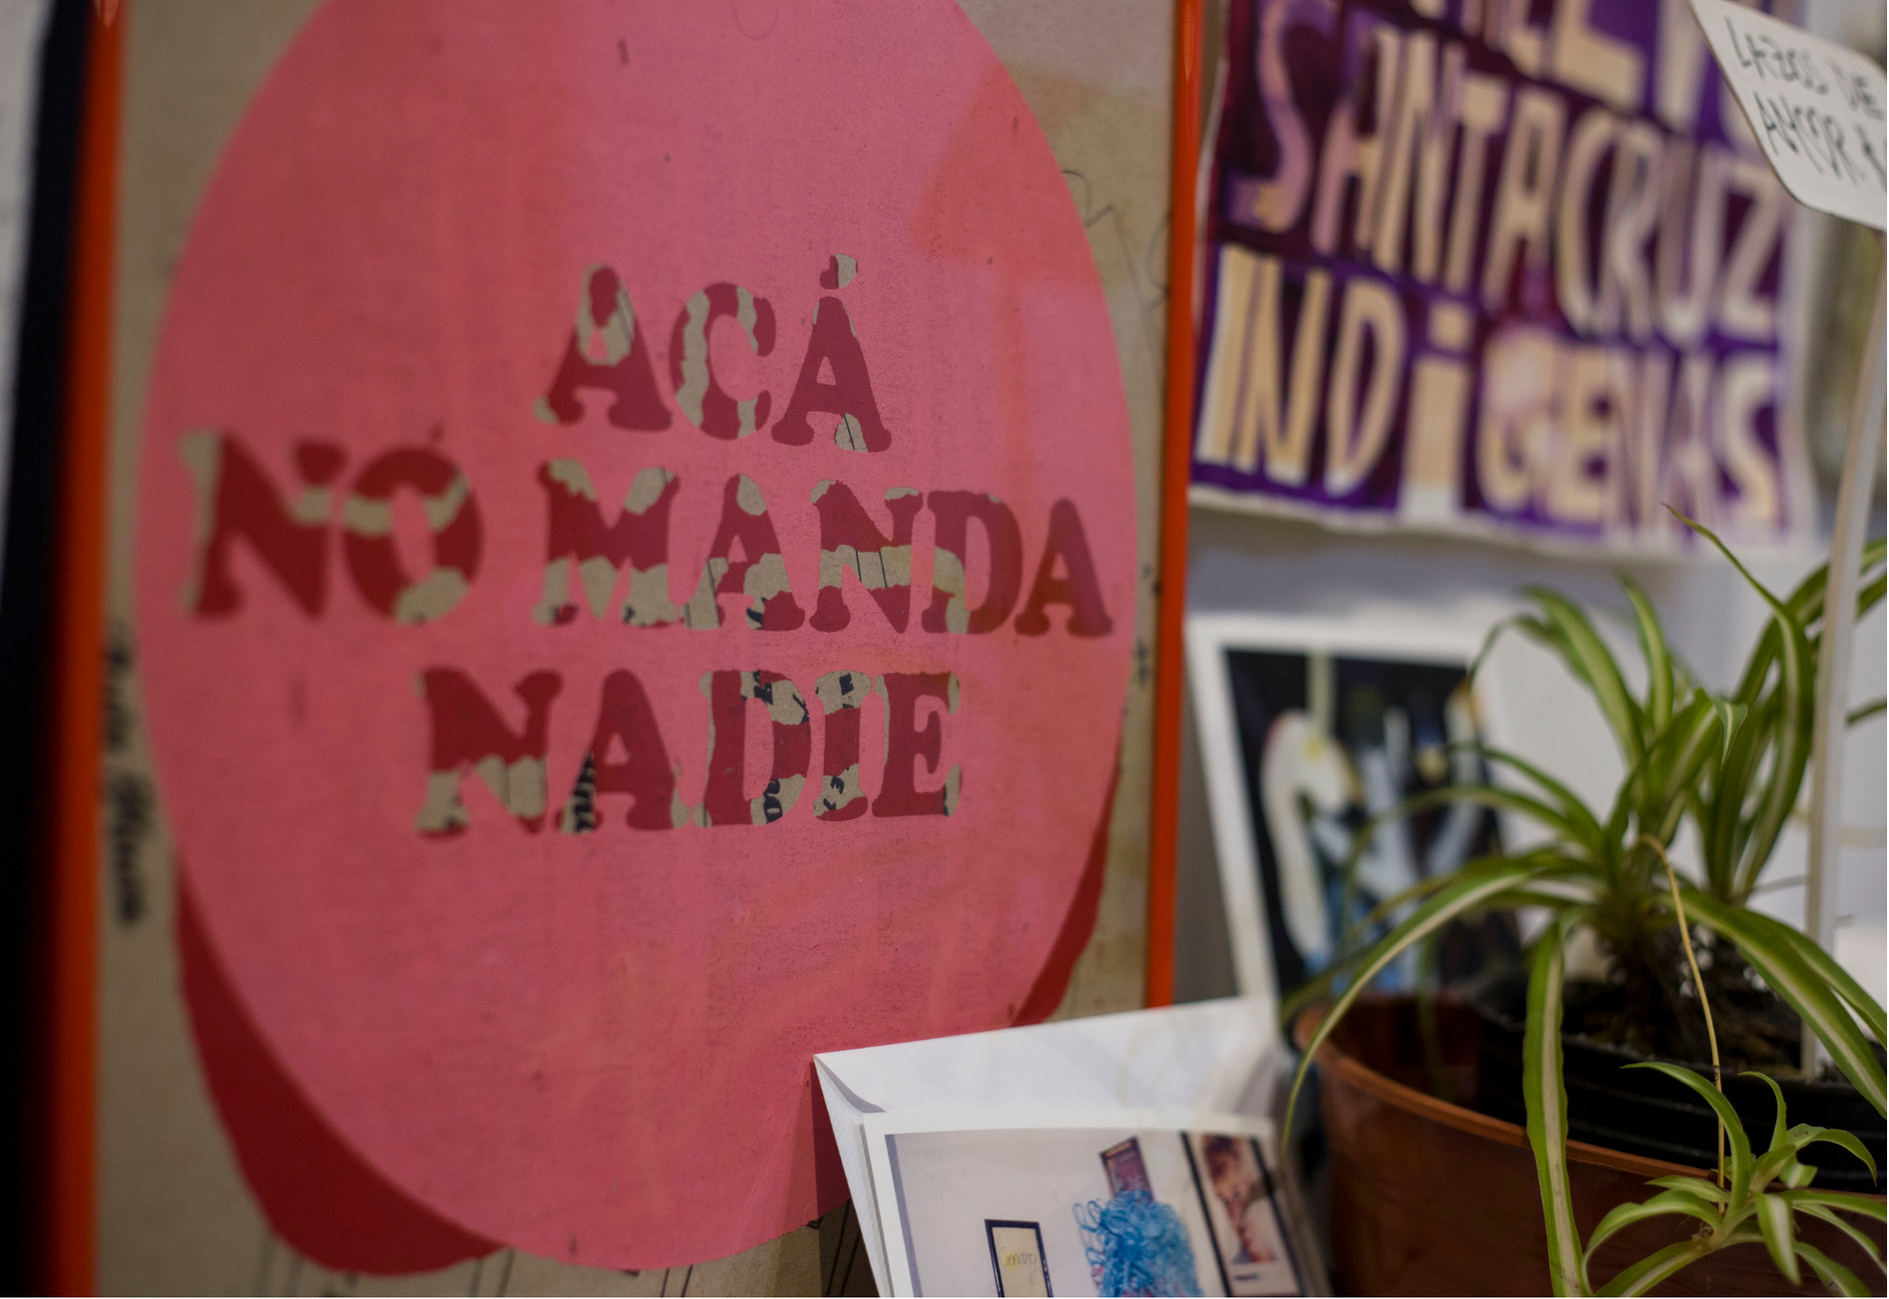 ACÁ
NO MANDA
NADIE
SANTACRUZ
INDiGENAS
LAZOS DE
AMOR